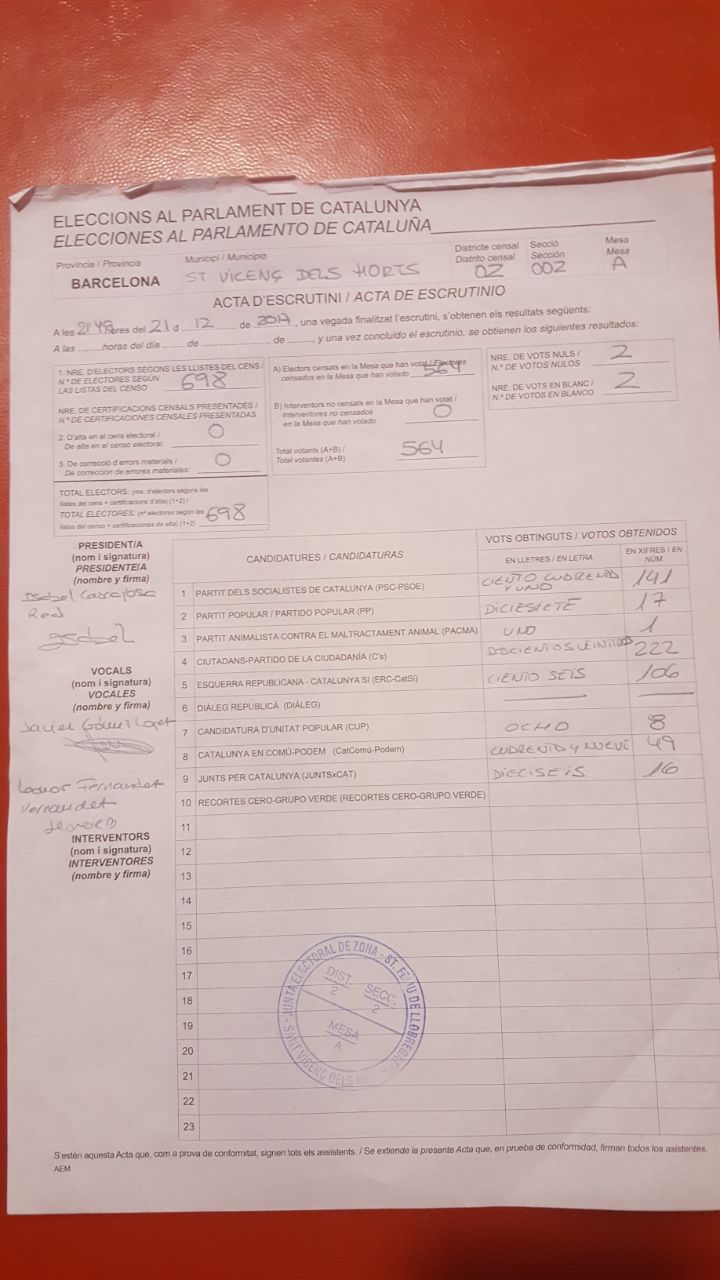 ELECCIONS AL PARLAMENT DE CATALUNYA
ELECCIONES AL PARLAMENTO DE CATALUÑA
Provincia / Provincia
BARCELONA
Municipi / Municipio
ST VICENÇ DELS HORTS
Districte censal
Distrito censal
02
Secció
Sección
002
Mesa
Mesa
A
ACTA D'ESCRUTINI / ACTA DE ESCRUTINIO
A les 21:49 hores del 21 d 12 de 2017, una vegada finalitzat l'escrutini, s'obtenen els resultats següents:
A las ........ horas del día ........ de ........, de ........, y una vez concluido el escrutinio, se obtienen los siguientes resultados:
1. NRE. D'ELECTORS SEGONS LES LLISTES DEL CENS /
N.º DE ELECTORES SEGÚN
LAS LISTAS DEL CENSO
698
NRE. DE CERTIFICACIONS CENSALS PRESENTADES /
N.º DE CERTIFICACIONES CENSALES PRESENTADAS
2. D'alta en el cens electoral /
De alta en el censo electoral:
0
3. De correcció d'errors materials /
De corrección de errores materiales:
0
TOTAL ELECTORS: (nre. d'electors segons les
llistes del cens + certificacions d'alta) (1+2) /
TOTAL ELECTORES: (nº electores según las
listas del censo + certificaciones de alta) (1+2)
698
A) Electors censats en la Mesa que han votat / Electores
censados en la Mesa que han votado
564
B) Interventors no censats en la Mesa que han votat /
Interventores no censados
en la Mesa que han votado
0
Total votants (A+B) /
Total votantes (A+B)
564
NRE. DE VOTS NULS /
N.º DE VOTOS NULOS
2
NRE. DE VOTS EN BLANC /
N.º DE VOTOS EN BLANCO
2
PRESIDENT/A
(nom i signatura)
PRESIDENTE/A
(nombre y firma)
Isabel
Isabel
VOCALS
(nom i signatura)
VOCALES
(nombre y firma)
Javier Gómez
Leonor Fernandez
Hernandez
Leonor
INTERVENTORS
(nom i signatura)
INTERVENTORES
(nombre y firma)
CANDIDATURES / CANDIDATURAS
VOTS OBTINGUTS / VOTOS OBTENIDOS
EN LLETRES / EN LETRA
EN XIFRES / EN NÚM.
1 PARTIT DELS SOCIALISTES DE CATALUNYA (PSC-PSOE) CIENTO CUARENTA Y UNO 141
2 PARTIT POPULAR / PARTIDO POPULAR (PP) DICIESIETE 17
3 PARTIT ANIMALISTA CONTRA EL MALTRACTAMENT ANIMAL (PACMA) UNO 1
4 CIUTADANS-PARTIDO DE LA CIUDADANÍA (C's) DOSCIENTOS VEINTIDOS 222
5 ESQUERRA REPUBLICANA - CATALUNYA SI (ERC-CatSí) CIENTO SEIS 106
6 DIÀLEG REPUBLICÀ (DIÀLEG)
7 CANDIDATURA D'UNITAT POPULAR (CUP) OCHO 8
8 CATALUNYA EN COMÚ-PODEM (CatComú-Podem) CUARENTA Y NUEVE 49
9 JUNTS PER CATALUNYA (JUNTSxCAT) DIECISEIS 16
10 RECORTES CERO-GRUPO VERDE (RECORTES CERO-GRUPO VERDE)
11
12
13
14
15
16
17
18
19
20
21
22
23
JUNTA ELECTORAL DE ZONA - ST. FELIU DE LLOBREGAT - SANT VICENÇ DELS
DIST. 2
SECC. 2
MESA
A
S'estén aquesta Acta que, com a prova de conformitat, signen tots els assistents. / Se extiende la presente Acta que, en prueba de conformidad, firman todos los asistentes.
AEM